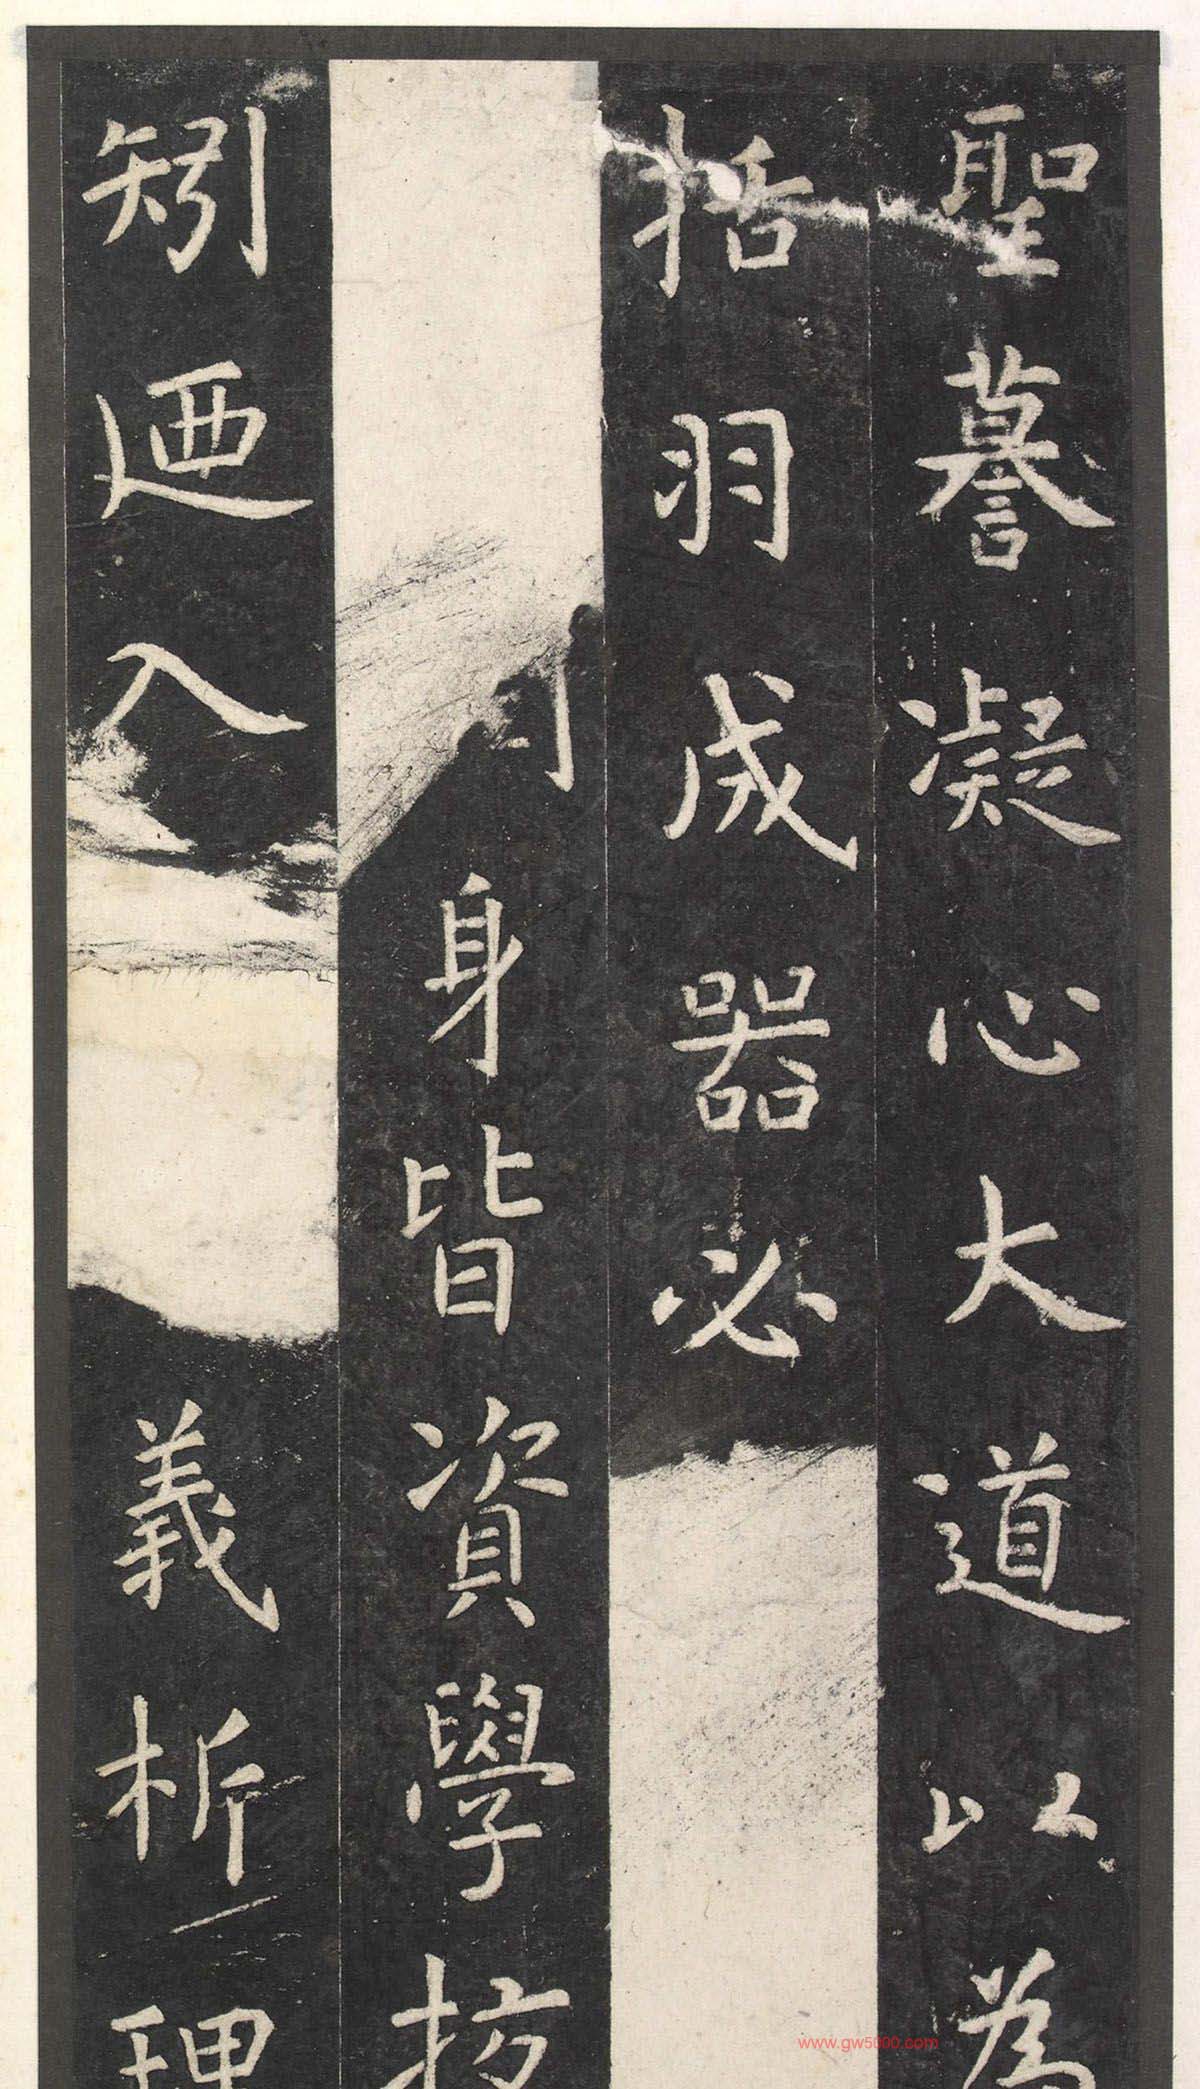 聖謩凝心大道以為
括羽成器必
身皆資學
矧廼入義析理
www.gw5000.com